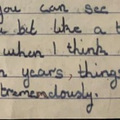 you can see
u but like a t
when I think
n years, things
tremendously.